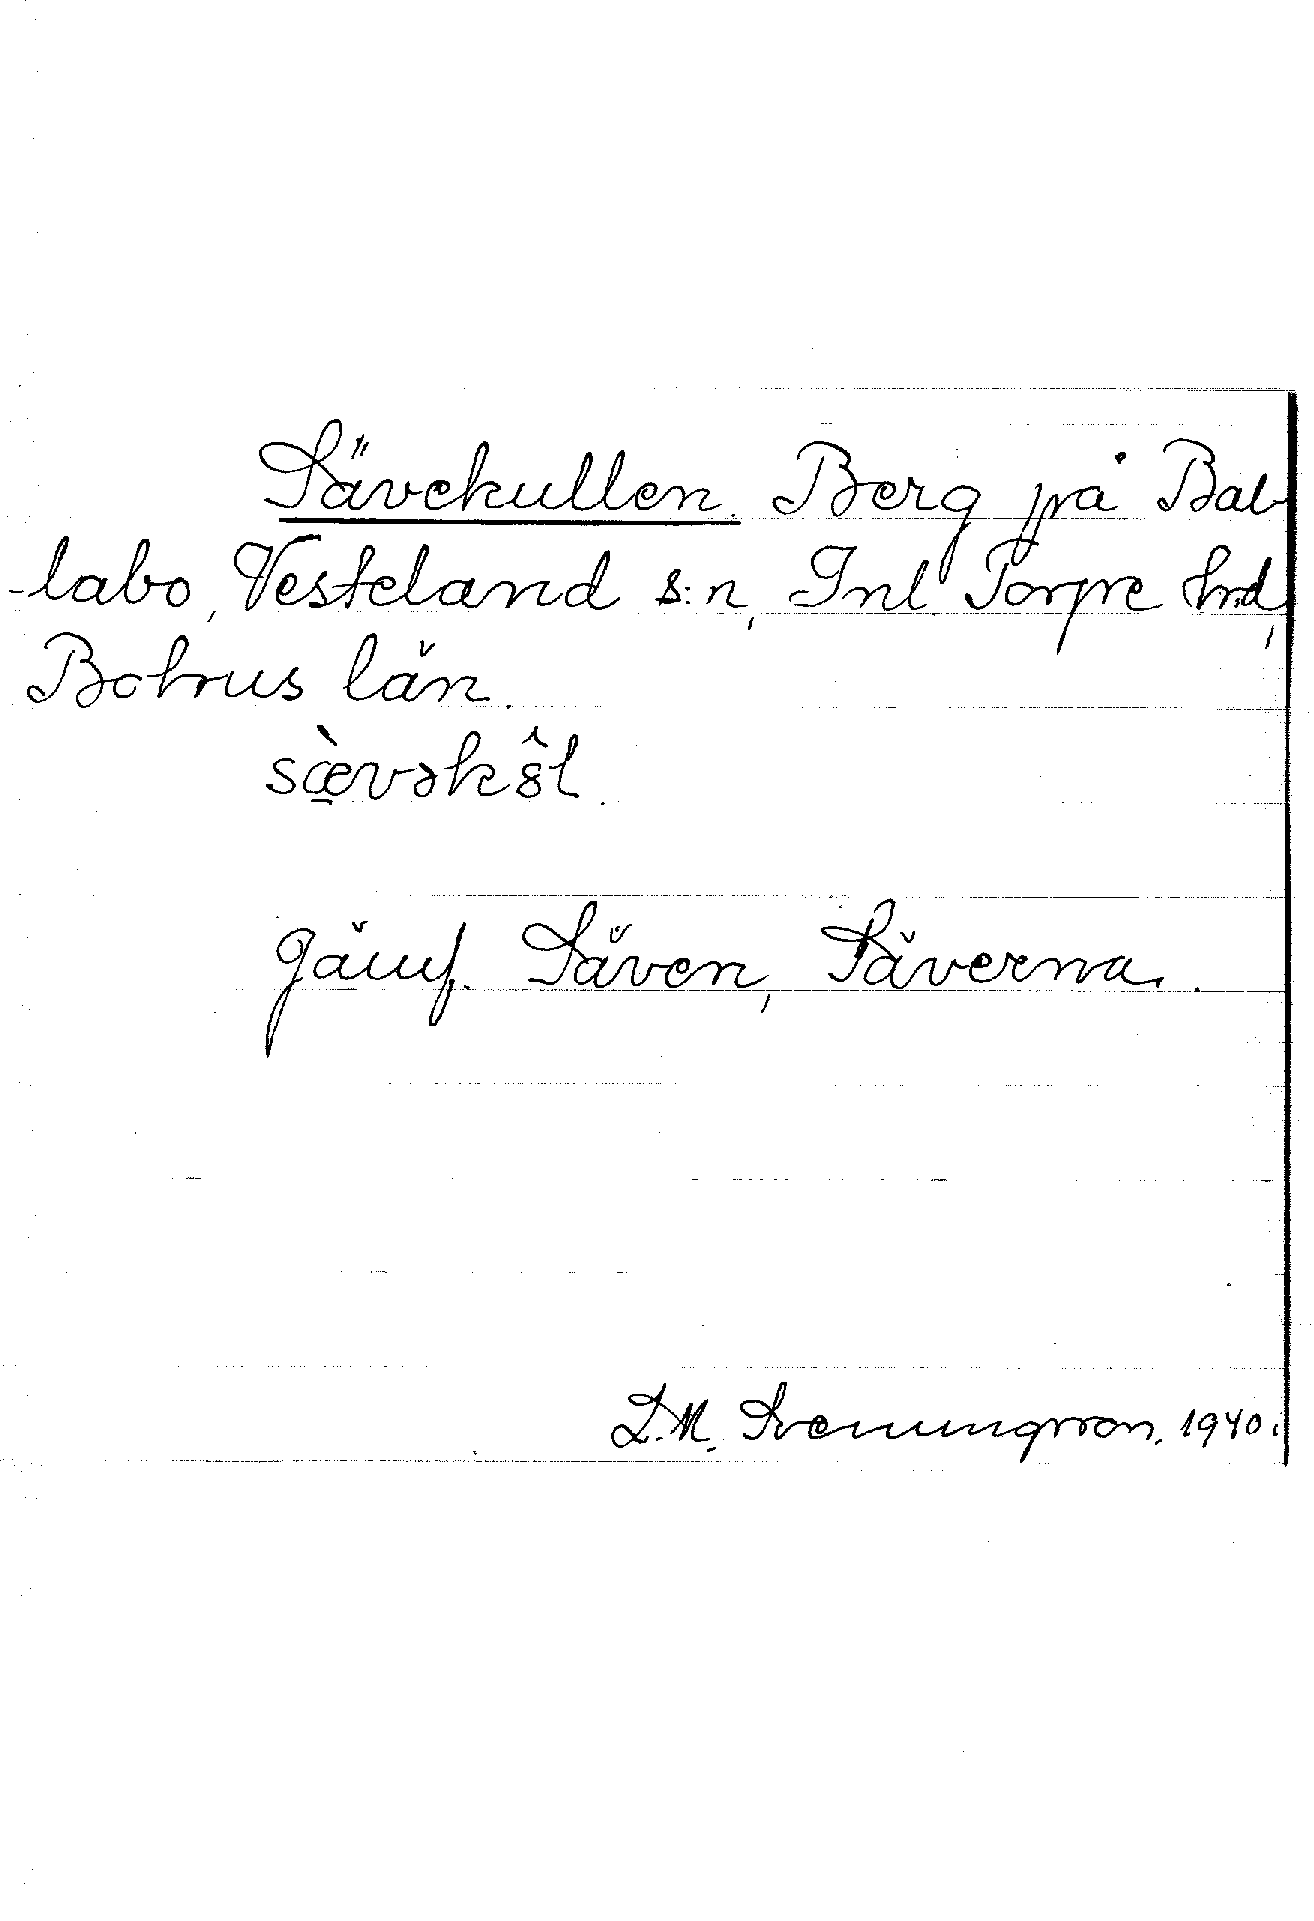 Sävekullen. Berg på Bal-
labo, Vesteland s:n, Inl Torpe hrd,
Bohus län.
sæ̀vəkôl.
Jämf. Säven, Säverna.
L. M. Svenungsson. 1940.